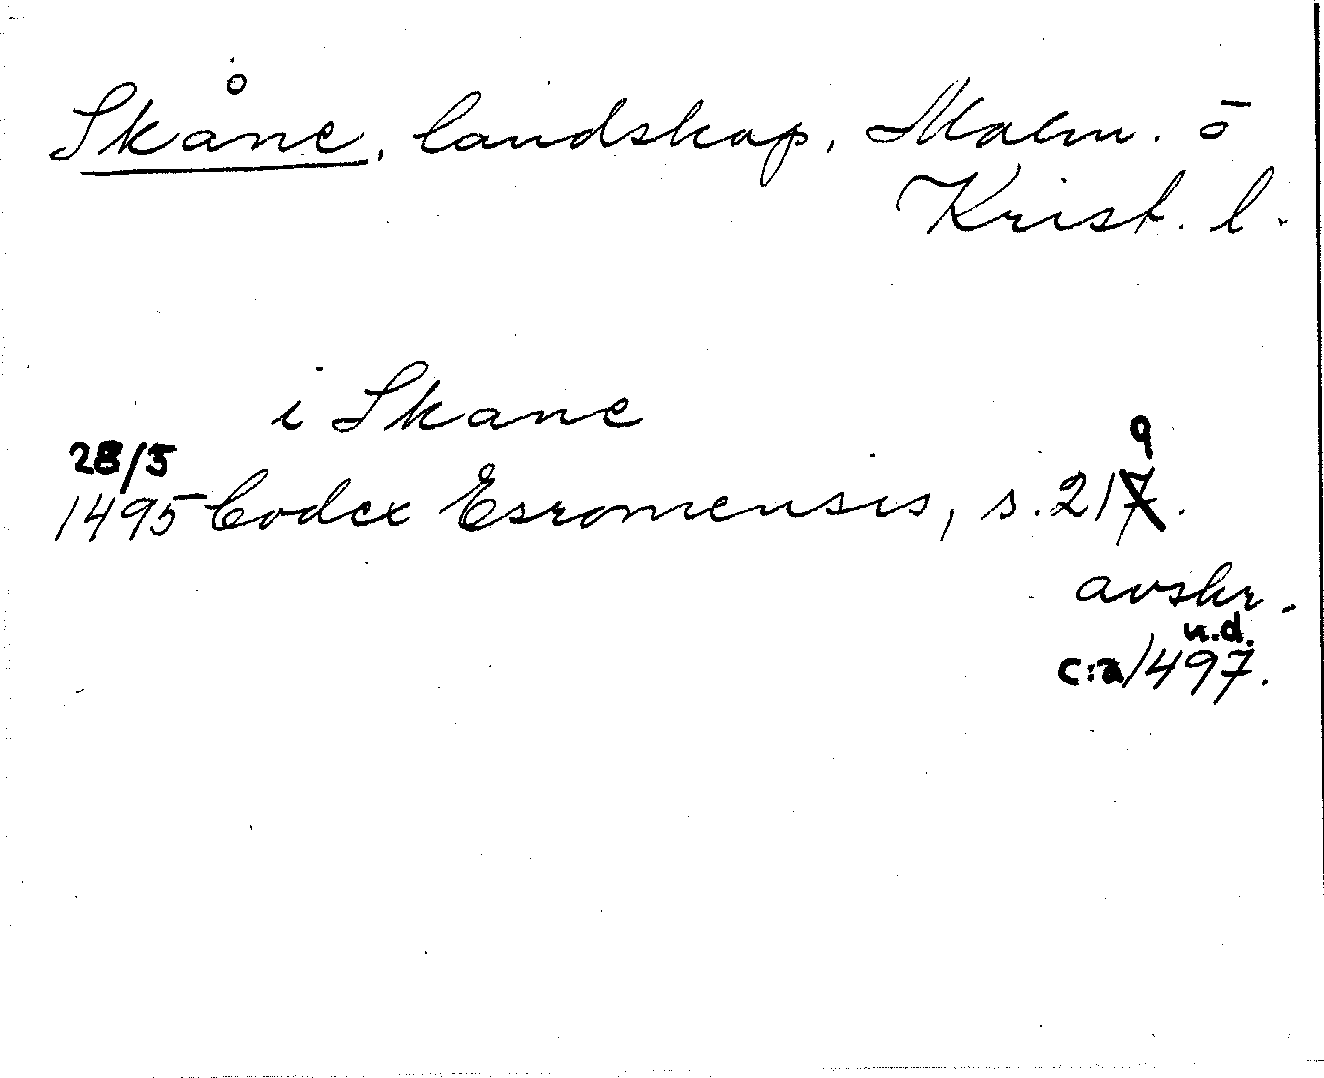 Skåne, landskap, Malm. ō
Krist. l.
i Skane
28/5
1495 Codex Esromensis, s. 219.
avskr.
u.d.
c:a 1497.